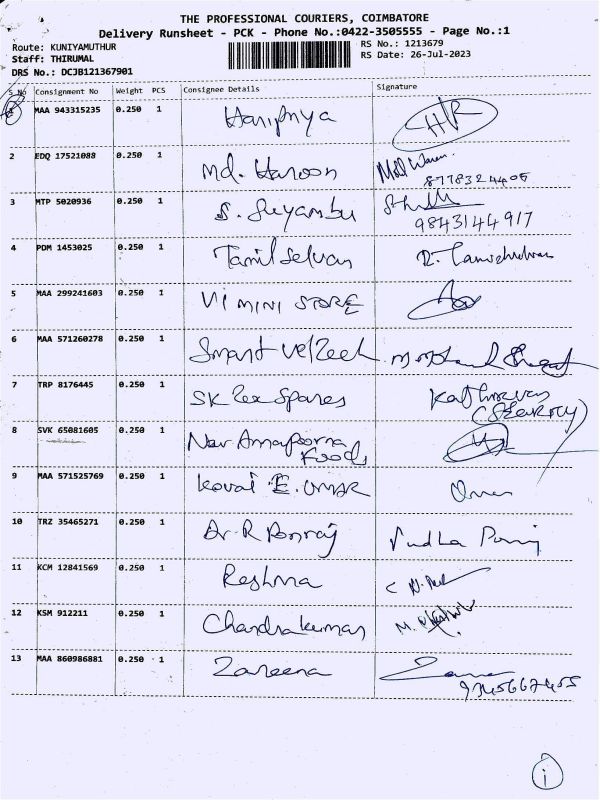 THE PROFESSIONAL COURIERS, COIMBATORE
Delivery Runsheet - PCK - Phone No.:0422-3505555 - Page No.:1
Route: KUNIYAMUTHUR
RS No.: 1213679
Staff: THIRUMAL
RS Date: 26-Jul-2023
DRS No.: DCJB121367901
S No Consignment No Weight PCS Consignee Details Signature
1 MAA 943315235 0.250 1 Haripriya HR
2 EDQ 17521088 0.250 1 Md. Haroon
3 MTP 5020936 0.250 1 S. Suyambu
9843144917
4 PDM 1453025 0.250 1 Tamil Selvan
5 MAA 299241603 0.250 1 Vi MINI STORE
6 MAA 571260278 0.250 1 Smart
7 TRP 8176445 0.250 1 SK Zex Spares
8 SVK 65081605 0.250 1 Nav Annapoorna
Foods
9 MAA 571525769 0.250 1 Kovai E. UMAR
10 TRZ 35465271 0.250 1 Dr. R Ponraj
11 KCM 12841569 0.250 1 Reshma
12 KSM 912211 0.250 1 Chandrakumar
13 MAA 860986881 0.250 1 Zareena
i